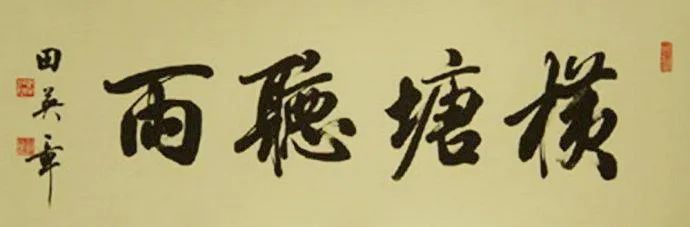 橫塘聽雨
田英章